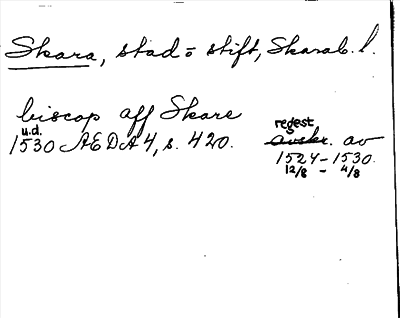 Skara, stad o stift, Skarab. l.
biscop aff Skare
u.d.
1530 AEDA 4, s. 420.
regest
avskr. av
1524-1530.
12/8 - 4/8